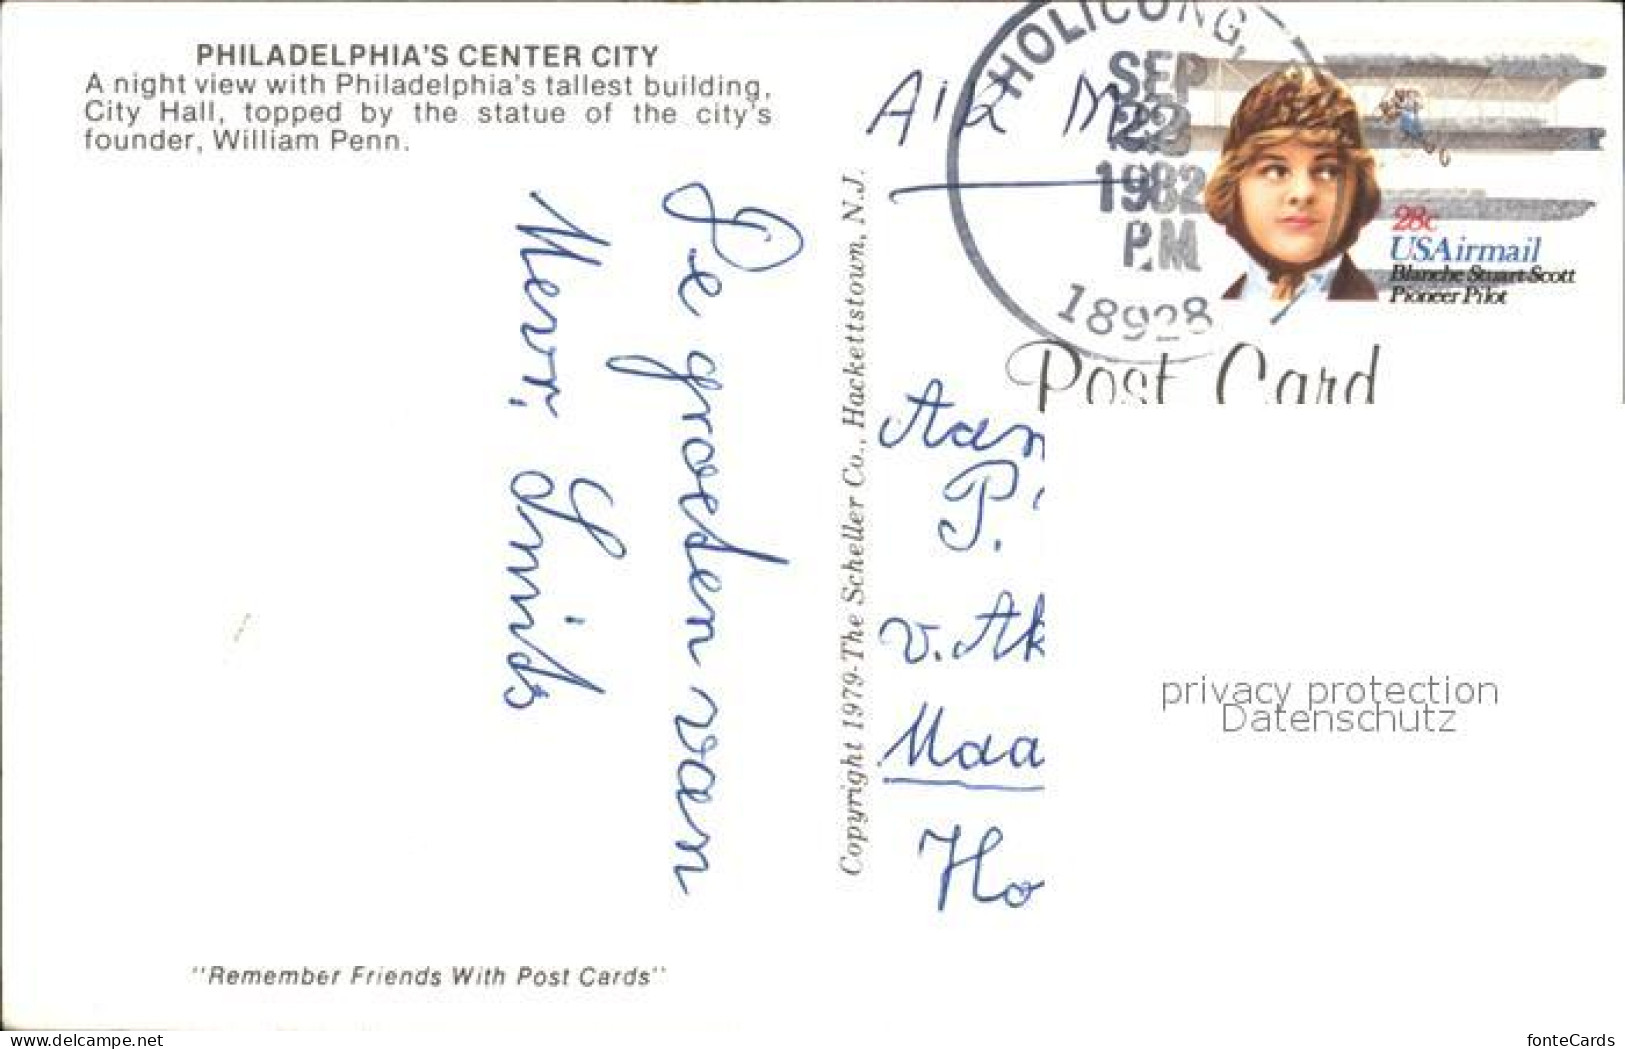 PHILADELPHIA'S CENTER CITY
A night view with Philadelphia's tallest building,
City Hall, topped by the statue of the city's
founder, William Penn.
De groeten van
Mevr, Smids
"Remember Friends With Post Cards"
Copyright 1979-The Scheller Co., Hackettstown, N.J.
AIR M
HOLICONG,
SEP
22
1982
PM
18928
28c
USAirmail
Blanche Stuart Scott
Pioneer Pilot
Post Card
Aan
P.
v. Ak
Maa
Ho
privacy protection
Datenschutz
www.delcampe.net
fonteCards